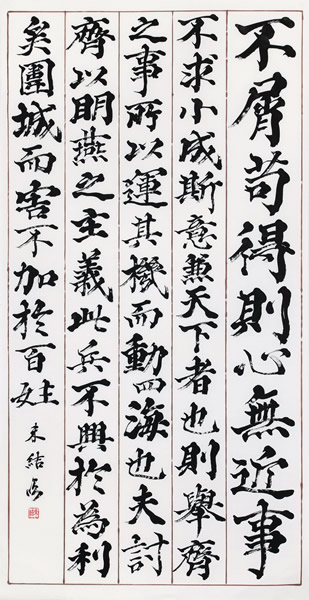 不屑苟得則心無近事
不求小成斯意兼天下者也則舉齊
之事所以運其機而動四海也夫討
齊以明燕之主義此兵不興於為利
矣圍城而害不加於百姓